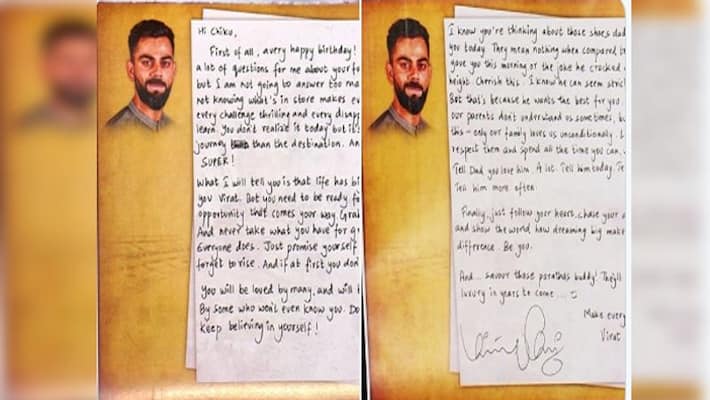 Hi Chiku,
First of all, a very happy birthday!
a lot of questions for me about your fu
but I am not going to answer too ma
not knowing what's in store makes ev
every challenge thrilling and every disap
learn. You don't realise it today but it's
journey than the destination. An
SUPER!
What I will tell you is that life has bi
you Virat. But you need to be ready fo
opportunity that comes your way. Grab
And never take what you have for gr
Everyone does. Just promise yourself
forget to rise. And if at first you don
You will be loved by many, and will
By some who won't even know you. Do
keep believing in yourself!
I know you're thinking about those shoes dad
you today. They mean nothing when compared t
gave you this morning or the joke he cracked
height. Cherish this. I know he can seem stric
But that's because he wants the best for you.
our parents don't understand us sometimes, bu
this - only our family loves us unconditionally. L
respect them and spend all the time you can.
Tell Dad you love him. A lot. Tell him today. Te
Tell him more often.
Finally, just follow your heart, chase your
and show the world how dreaming big make
difference. Be you.
And... savour those parathas buddy! They'll
luxury in years to come...
Make every
Virat